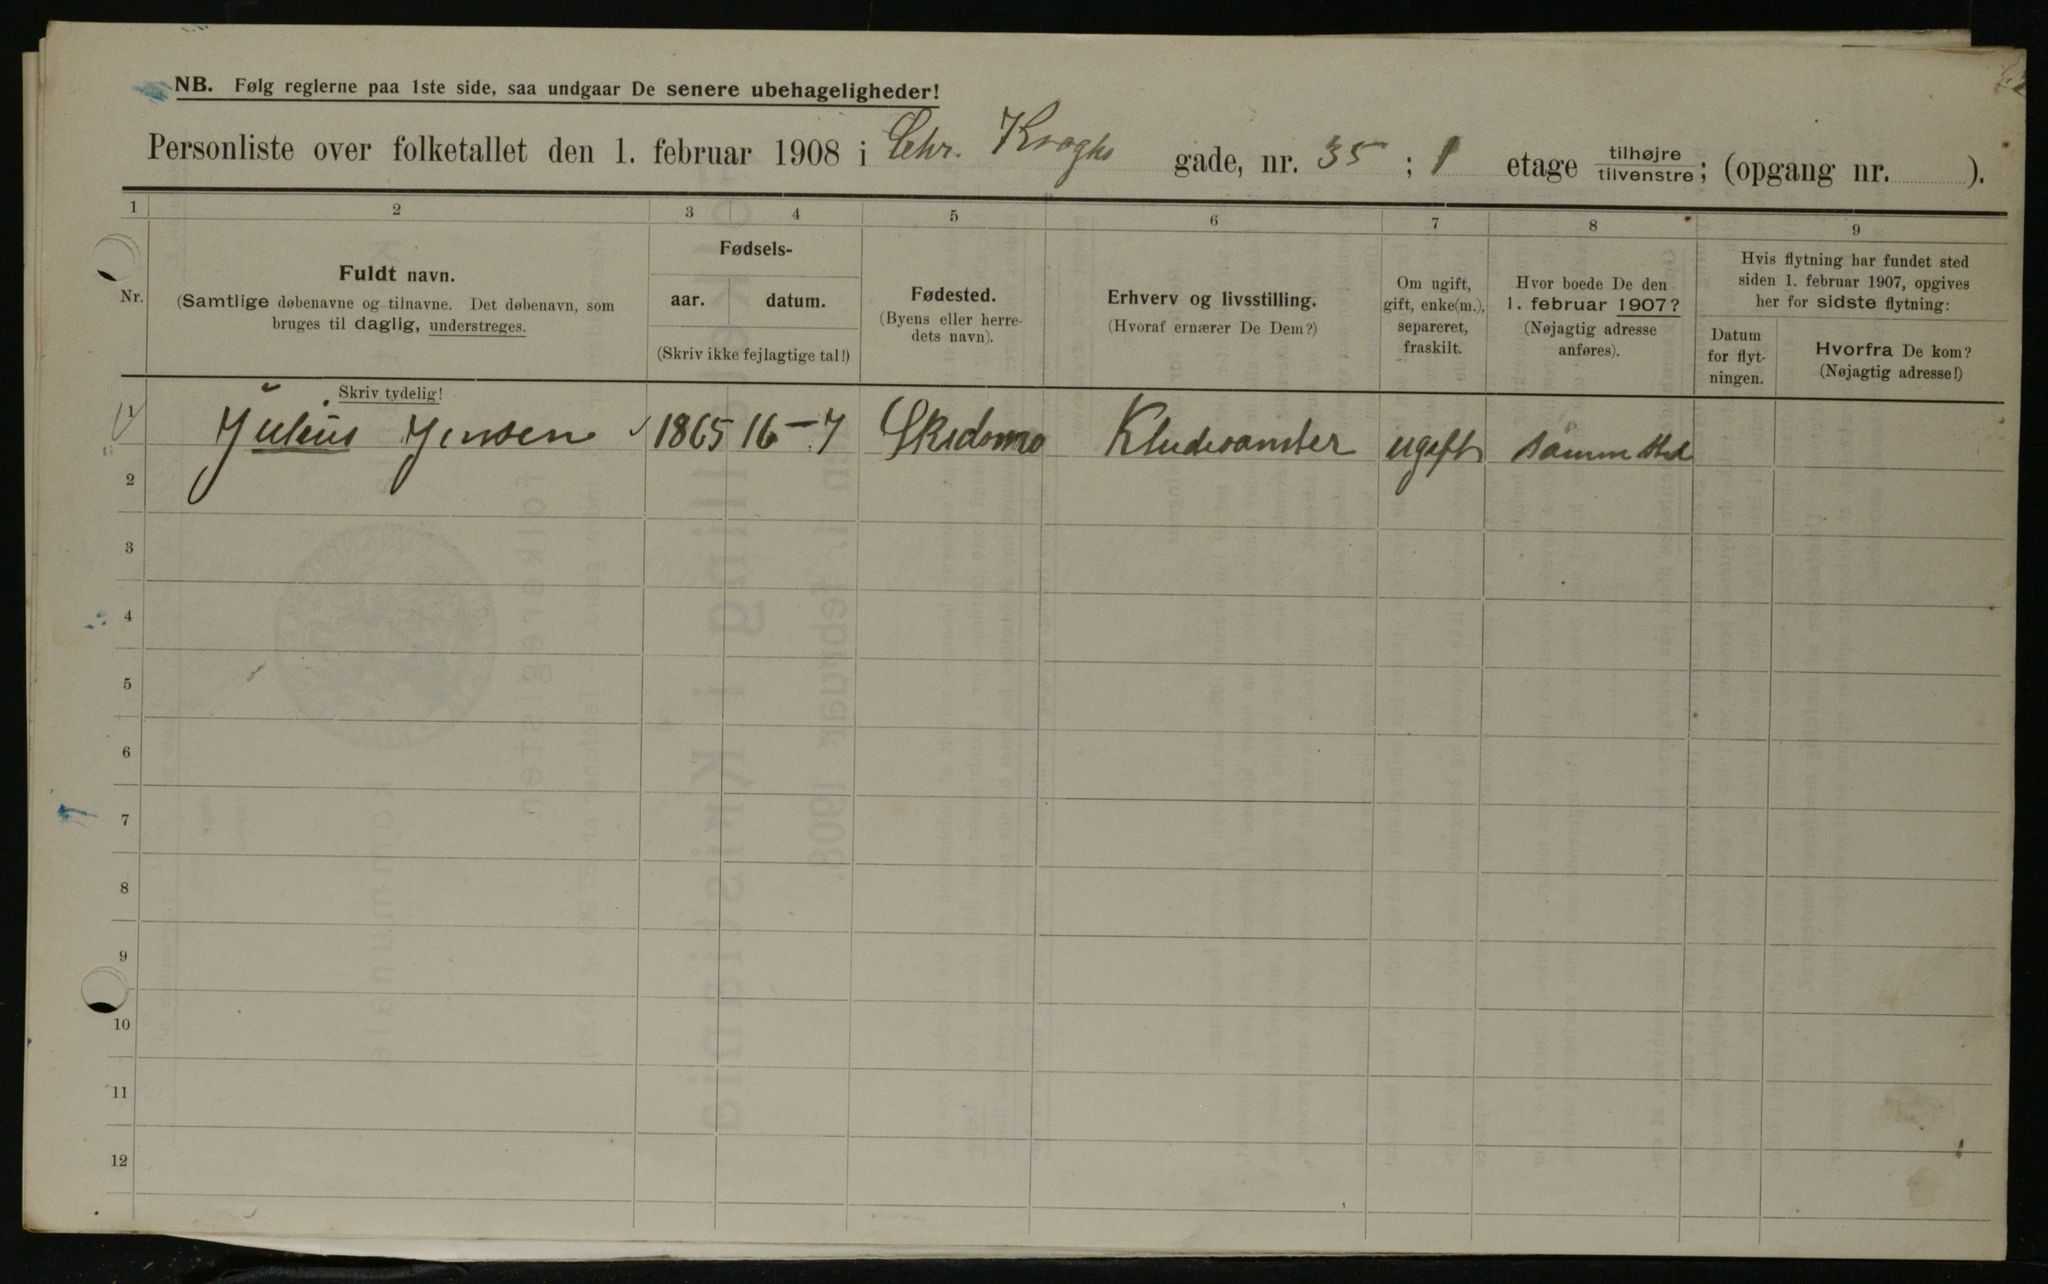 NB. Følg reglerne paa 1ste side, saa undgaar De senere ubehageligheder!
Personliste over folketallet den 1. februar 1908 i Chr. Kroghs gade, nr. 35; 1 etage tilhøjre/tilvenstre; (opgang nr. ).
1 2 3 4 5 6 7 8 9
Nr.
Fuldt navn.
(Samtlige døbenavne og tilnavne. Det døbenavn, som
bruges til daglig, understreges.
Skriv tydelig!
Fødsels-
aar. datum.
(Skriv ikke fejlagtige tal!)
Fødested.
(Byens eller herre-
dets navn).
Erhverv og livsstilling.
(Hvoraf ernærer De Dem?)
Om ugift,
gift, enke(m.),
separeret,
fraskilt.
Hvor boede De den
1. februar 1907?
(Nøjagtig adresse
anføres).
Hvis flytning har fundet sted
siden 1. februar 1907, opgives
her for sidste flytning:
Datum
for flyt-
ningen.
Hvorfra De kom?
(Nøjagtig adresse!)
1 Julius Jensen 1865 16-7 Skedsmo Kludesamler ugift samme sted
2
3
4
5
6
7
8
9
10
11
12